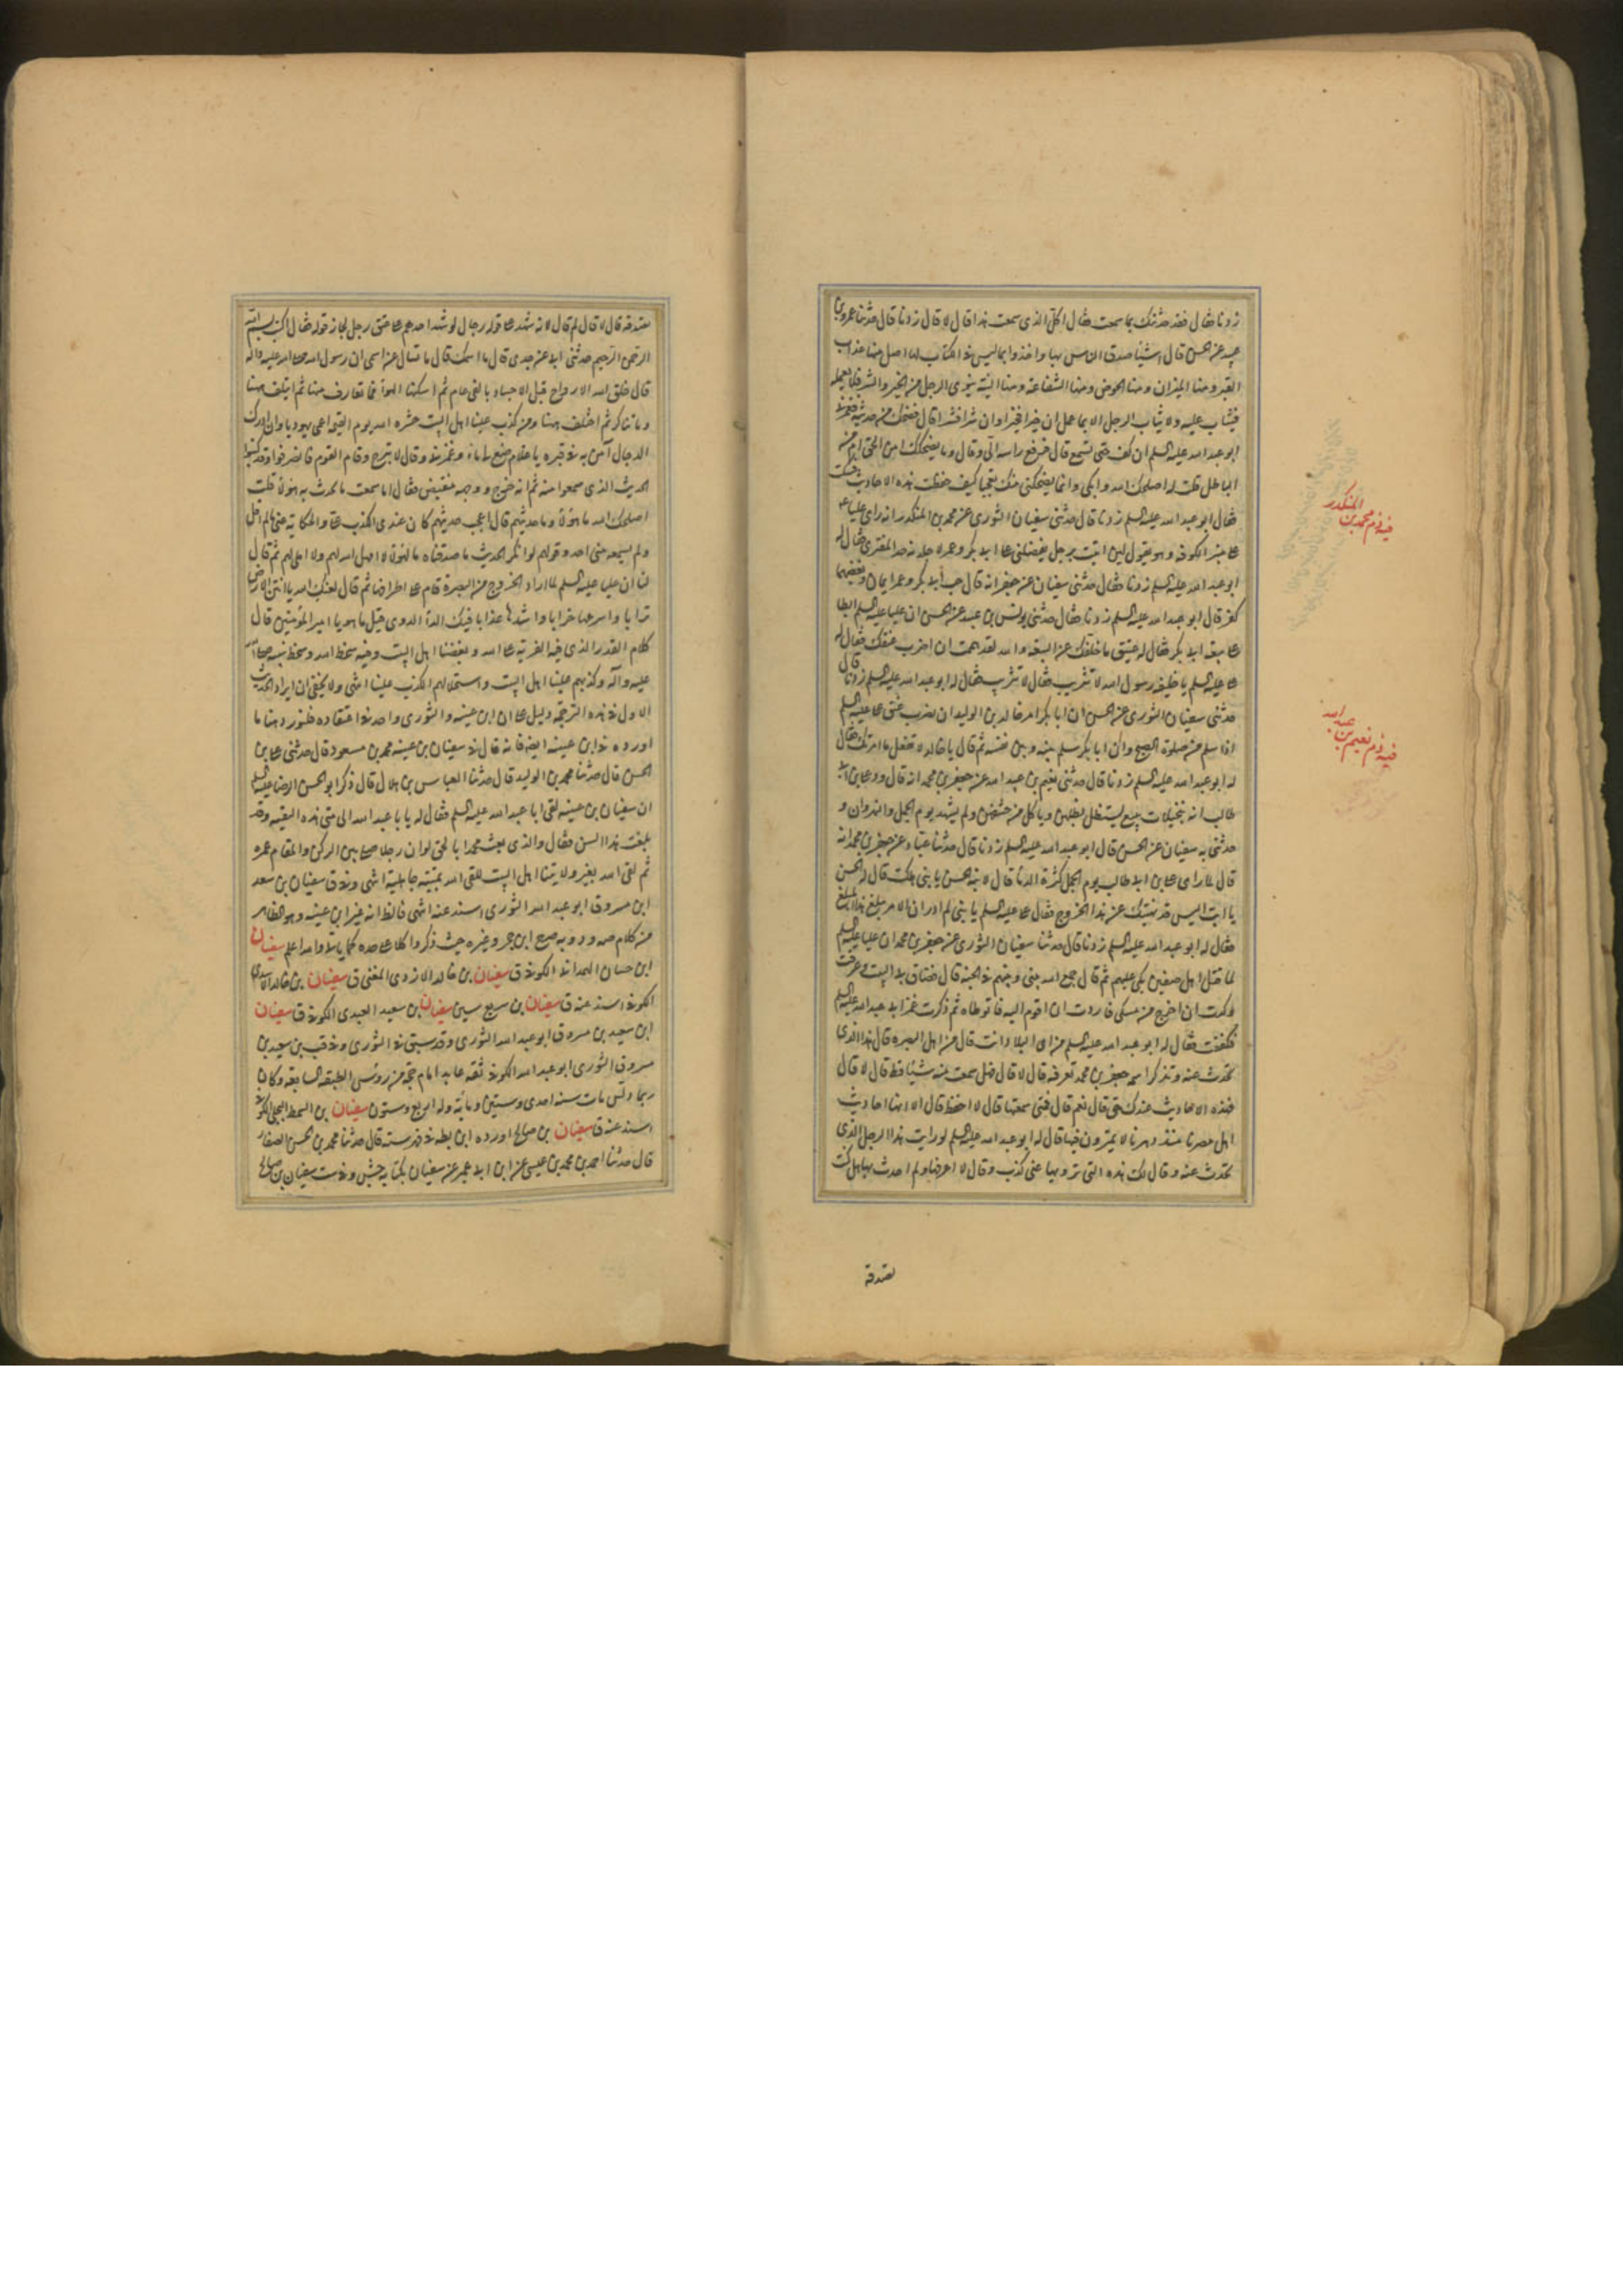 زدنا فقال فقد حدثتك بما سمعت فقال اكل الذى سمعت هذا قال لا قال زدنا قال حدثنا عمرو بن
عبيد عن الحسن قال اشياء صدق الناس بها واخذوا بما ليس فى الكتاب لها اصل منها عذاب
القبر ومنها الميزان ومنها الحوض ومنها الشفاعة ومنها النية ينوى الرجل من الخير والشر فلا يعمله
فيثاب عليه ولا يثاب الرجل الا بما عمل ان خيرا فخيرا وان شرا فشرا قال فضحكت من حديثه فغمزنى
ابو عبد الله عليه السلم ان كف حتى نسمع قال فرفع راسه الى وقال وما يضحكك امن الحق ام من
الباطل قلت له اصلحك الله وابكى وانما يضحكنى منك تعجبا كيف حفظت هذه الاحاديث فسكت
فقال ابو عبد الله عليه السلم زدنا قال حدثنى سفيان الثورى عن محمد بن المنكدر انه راى عليا ع
على منبر الكوفة وهو يقول لئن اتيت برجل يفضلنى على ابى بكر وعمر لاجلدنه حد المفترى فقال له
ابو عبد الله عليه السلم زدنا فقال حدثنى سفيان عن جعفر انه قال حب ابى بكر وعمر ايمان وبغضهما
كفر قال ابو عبد الله عليه السلم زدنا فقال حدثنى يونس بن عبيد عن الحسن ان عليا عليه السلم ابطا
على بيعة ابى بكر فقال له عتيق ما خلفك عن البيعة والله لقد هممت ان اضرب عنقك فقال له
على عليه السلم يا خليفة رسول الله لا تثريب فقال لا تثريب فقال له ابو عبد الله عليه السلم زدنا قال
حدثنى سفيان الثورى عن الحسن ان ابا بكر امر خالد بن الوليد ان يضرب عنق على عليه السلم
اذا سلم من صلوة الصبح وان ابا بكر سلم بينه وبين نفسه ثم قال يا خالد لا تفعل ما امرتك فقال
له ابو عبد الله عليه السلم زدنا قال حدثنى نعيم بن عبد الله عن جعفر بن محمد انه قال ود على بن ابى
طالب انه بنخيلات ينبع يستظل بظلهن وياكل من حشفهن ولم يشهد يوم الجمل والنهروان و
حدثنى به سفيان عن الحسن قال ابو عبد الله عليه السلم زدنا قال حدثنا عباد عن جعفر بن محمد انه
قال لما راى على بن ابى طالب يوم الجمل كثرة الدنا قال لابنه الحسن يا بنى هلكت قال له الحسن
يا ابت اليس قد نهيتك عن هذا الخروج فقال على عليه السلم يا بنى لم ادر ان الامر يبلغ هذا المبلغ
فقال له ابو عبد الله عليه السلم زدنا قال حدثنا سفيان الثورى عن جعفر بن محمد ان عليا عليه السلم
لما قتل اهل صفين بكى عليهم ثم قال جمع الله بينى وبينهم فى الجنة قال فضاق بى البيت وعرقت
وكدت ان اخرج من مسكى فاردت ان اقوم اليه فاتوطاه ثم ذكرت غمز ابى عبد الله عليه السلم
فكففت فقال له ابو عبد الله عليه السلم من اى البلاد انت قال من اهل البصرة قال هذا الذى
تحدث عنه وتذكر اسمه جعفر بن محمد تعرفه قال لا قال فهل سمعت منه شيئا قط قال لا قال
فهذه الاحاديث عندك حق قال نعم قال فمتى سمعتها قال لا احفظ قال الا انها احاديث
اهل مصرنا منذ دهرنا لا يمترون فيها قال له ابو عبد الله عليه السلم لو رايت هذا الرجل الذى
تحدث عنه وقال لك هذه التى ترويها عنى كذب وقال لا اعرفها ولم احدث بها هل كنت
تصدقه
فيه ذم محمد بن المنكدر
فيه ذم نعيم بن عبد الله
تصدقه قال لا قال لم قال لانه شهد على قوله رجال لو شهد احدهم على عتق رجل لجاز قوله فقال اكتب بسم الله
الرحمن الرحيم حدثنى ابى عن جدى قال ما اسمك قال ما تسال عن اسمى ان رسول الله صلى الله عليه واله
قال خلق الله الارواح قبل الاجساد بالفى عام ثم اسكنها الهواء فما تعارف منها ثم ايتلف ههنا
وما تناكر ثم اختلف ههنا ومن كذب علينا اهل البيت حشره الله يوم القيمة اعمى يهوديا وان ادرك
الدجال آمن به فى قبره يا غلام ضع لى ماء وغمزنى وقال لا تبرح وقام القوم فانصرفوا وقد كتبوا
الحديث الذى سمعوا منه ثم انه خرج ووجهه منقبض فقال اما سمعت ما يحدث به هؤلاء قلت
اصلحك الله ما هؤلاء وما حديثهم قال اعجب حديثهم كان عندى الكذب على والحكاية عنى ما لم اقل
ولم يسمعه عنى احد وقولهم لو انكر الحديث ما صدقناه ما لهؤلاء لا امهل الله لهم ولا املى لهم ثم قال
لنا ان عليا عليه السلم لما اراد الخروج من البصرة قام على اطرافها ثم قال لعنك الله يا انتن الارض
ترابا واسرعها خرابا واشدها عذابا فيك الداء الدوى قيل ما هو يا امير المؤمنين قال
كلام القدر الذى فيه الفرية على الله وبغضنا اهل البيت وفيه سخط الله وسخط نبيه صلى الله
عليه واله وكذبهم علينا اهل البيت واستحلالهم الكذب علينا انتهى ولا يخفى ان ايراد الحديث
الاول فى هذه الترجمة دليل على ان ابن عيينة والثورى واحد فى اعتقاده فلنورد هنا ما
اورده فى ابن عيينة ايضا فانه قال فى سفيان بن عيينة محمد بن مسعود قال حدثنى على بن
الحسن قال حدثنا محمد بن الوليد قال حدثنا العباس بن هلال قال ذكر ابو الحسن الرضا عليه السلم
ان سفيان بن عيينة لقى ابا عبد الله عليه السلم فقال له يا با عبد الله الى متى هذه التقية وقد
بلغت هذا السن فقال والذى بعث محمدا بالحق لو ان رجلا صلى بين الركن والمقام عمره
ثم لقى الله بغير ولايتنا اهل البيت للقى الله بميتة جاهلية انتهى وفى ق سفيان بن سعد
ابن مسروق ابو عبد الله الثورى اسند عنه انتهى فالظ انه غير ابن عيينة وهو الظاهر
من كلام صه ود وبه صرح ابن حجر وغيره حيث ذكروا كلا على حده كما ياتى والله اعلم سفيان
ابن حسان الهمدانى الكوفى ق سفيان بن خالد الازدى المغنى ق سفيان بن خالد الاسدى
الكوفى اسند عنه ق سفيان بن سريع سين سفيان بن سعيد العبدى الكوفى ق سفيان
ابن سعيد بن مسروق ابو عبد الله الثورى وقد سبق فى الثورى وفى قب بن سعيد بن
مسروق الثورى ابو عبد الله الكوفى ثقه عابد امام حجة من رؤس الطبقة السابعة وكان
ربما دلس مات سنه احدى وستين ومائة وله اربع وستون سفيان بن السمط البجلى الكوفى
اسند عنه ق سفيان بن صالح اورده ابن بطه فى فهرسته قال حدثنا محمد بن الحسن الصفار
قال حدثنا احمد بن محمد بن عيسى عن ابن ابى عمير عن سفيان بكتابه جش وفى ست سفيان بن صالح